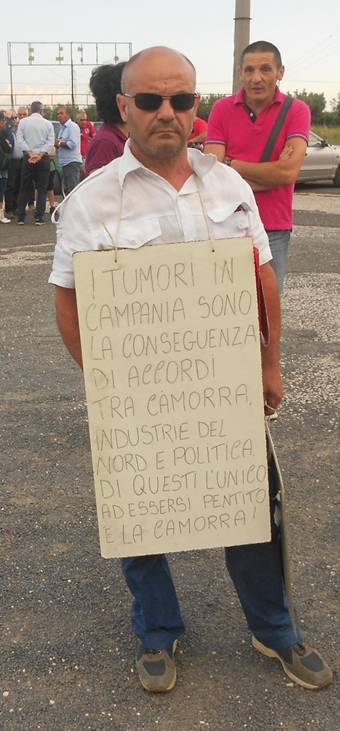 I TUMORI IN
CAMPANIA SONO
LA CONSEGUENZA
DI ACCORDI
TRA CAMORRA,
INDUSTRIE DEL
NORD E POLITICA.
DI QUESTI L'UNICO
AD ESSERSI PENTITO
È LA CAMORRA!